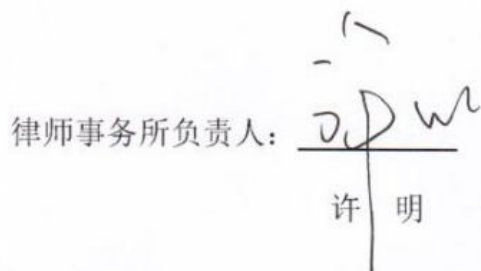 律师事务所负责人：
许 明